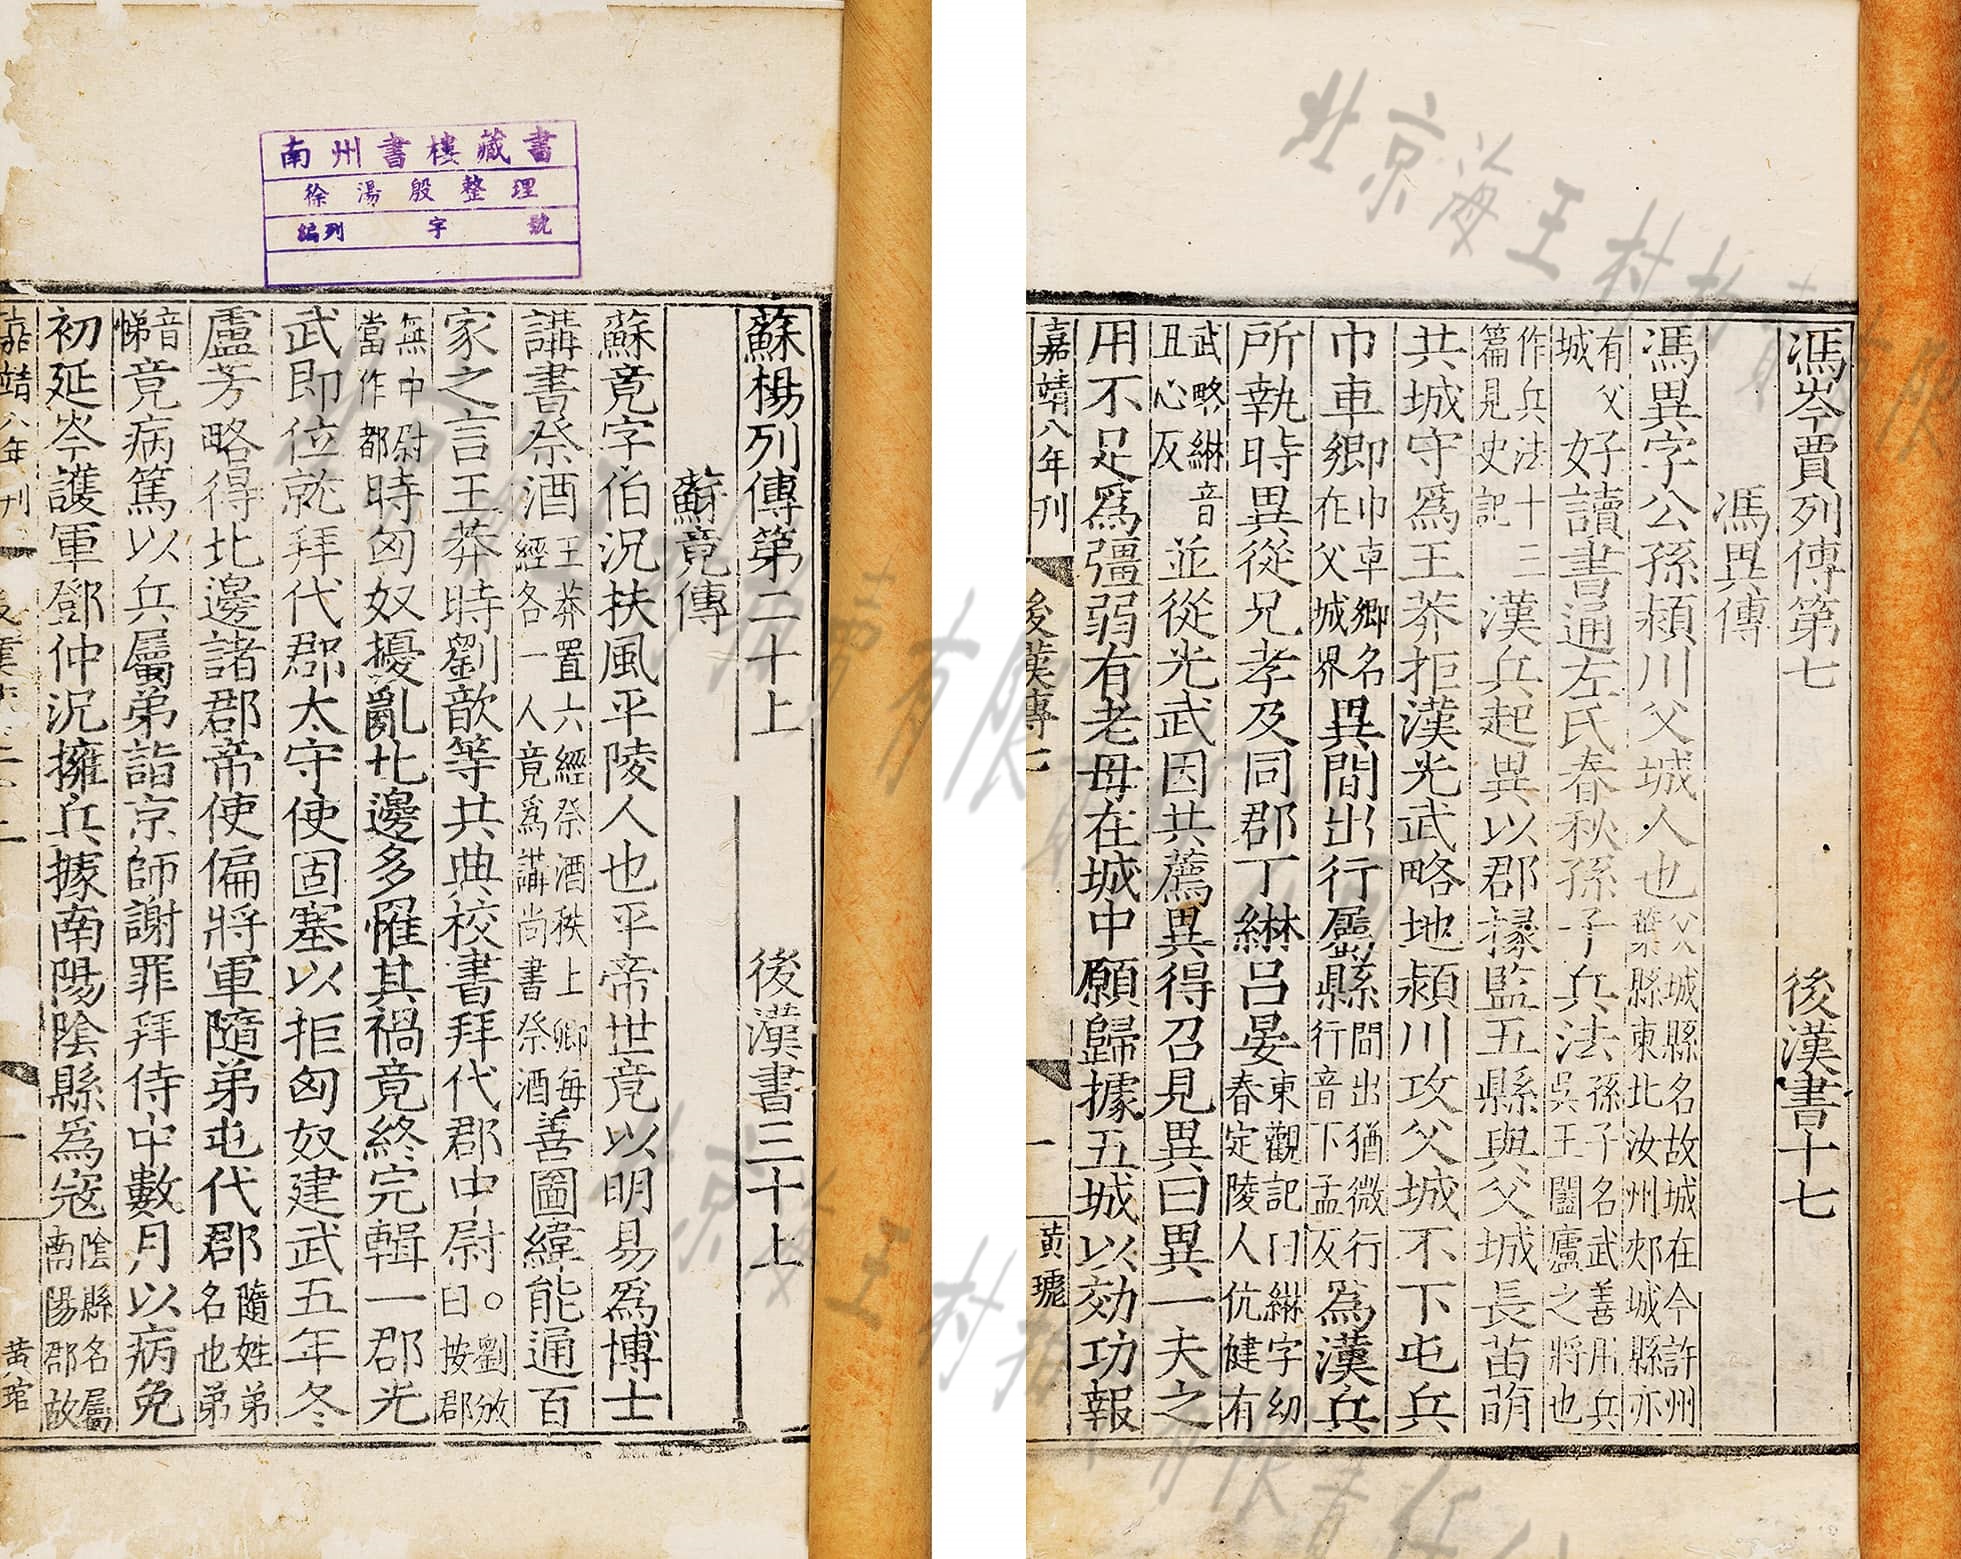 南州書樓藏書
徐湯殷整理
編列 字 號
蘇楊列傳第二十上 後漢書三十上
蘇竟傳
蘇竟字伯況扶風平陵人也平帝世竟以明易爲博士
講書祭酒王莽置六經祭酒秩上卿每經各一人竟爲講尚書祭酒善圖緯能通百
家之言王莽時劉歆等共典校書拜代郡中尉○劉攽曰按郡
無中尉當作都時匈奴擾亂北邊多罹其禍竟終完輯一郡光
武即位就拜代郡太守使固塞以拒匈奴建武五年冬
盧芳略得北邊諸郡帝使偏將軍隨弟屯代郡隨姓弟名也弟
音悌竟病篤以兵屬弟詣京師謝罪拜侍中數月以病免
初延岑護軍鄧仲況擁兵據南陽陰縣爲寇陰縣名屬南陽郡故
嘉靖八年刊 一 黃琯
馮岑賈列傳第七 後漢書十七
馮異傳
馮異字公孫潁川父城人也父城縣名故城在今許州葉縣東北汝州郟城縣亦
有父城好讀書通左氏春秋孫子兵法孫子名武善用兵吳王闔廬之將也
作兵法十三篇見史記漢兵起異以郡掾監五縣與父城長苗萌
共城守爲王莽拒漢光武略地潁川攻父城不下屯兵
巾車鄉巾車鄉名在父城界異間出行屬縣間出猶微行行音下孟反爲漢兵
所執時異從兄孝及同郡丁綝呂晏東觀記曰綝字幼春定陵人伉健有
武略綝音丑心反並從光武因共薦異得召見異曰異一夫之
用不足爲彊弱有老母在城中願歸據五城以效功報
嘉靖八年刊 後漢傳七 一 黃琥
北京海王村拍賣有限責任公司